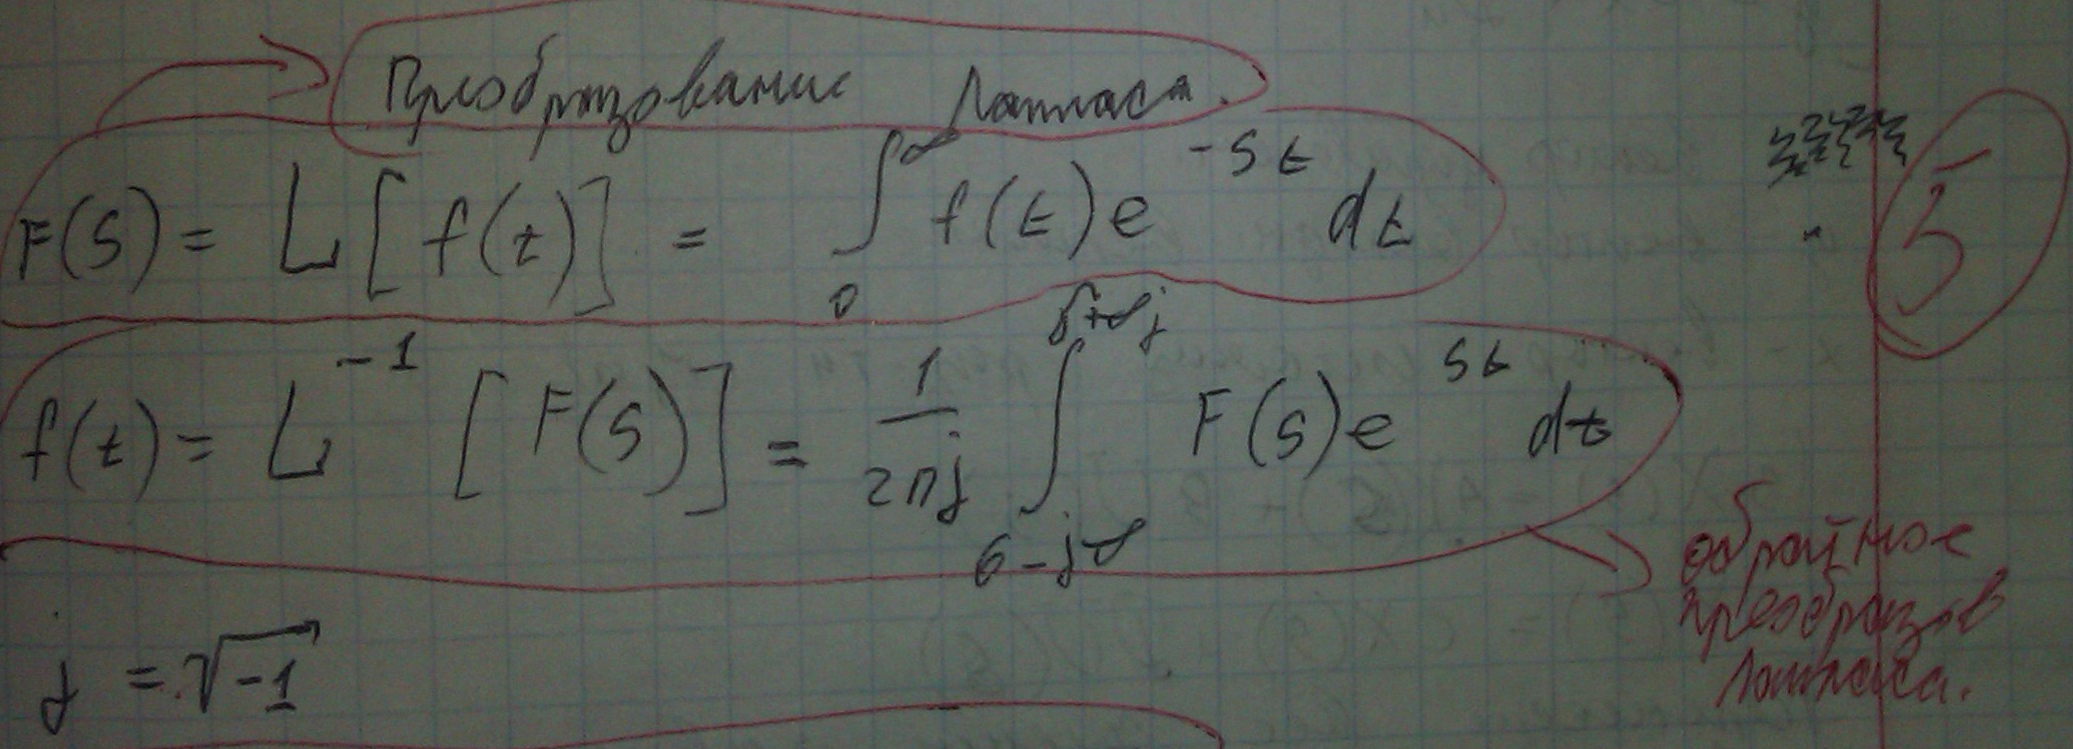 Преобразование Лапласа.
F(s) = L[f(t)] = ∫₀^∞ f(t)e^{-st} dt
5
f(t) = L^{-1}[F(s)] = \frac{1}{2πj} ∫_{σ-j∞}^{σ+∞j} F(s)e^{st} dt
обратное
преобразов
Лапласа.
j = √-1